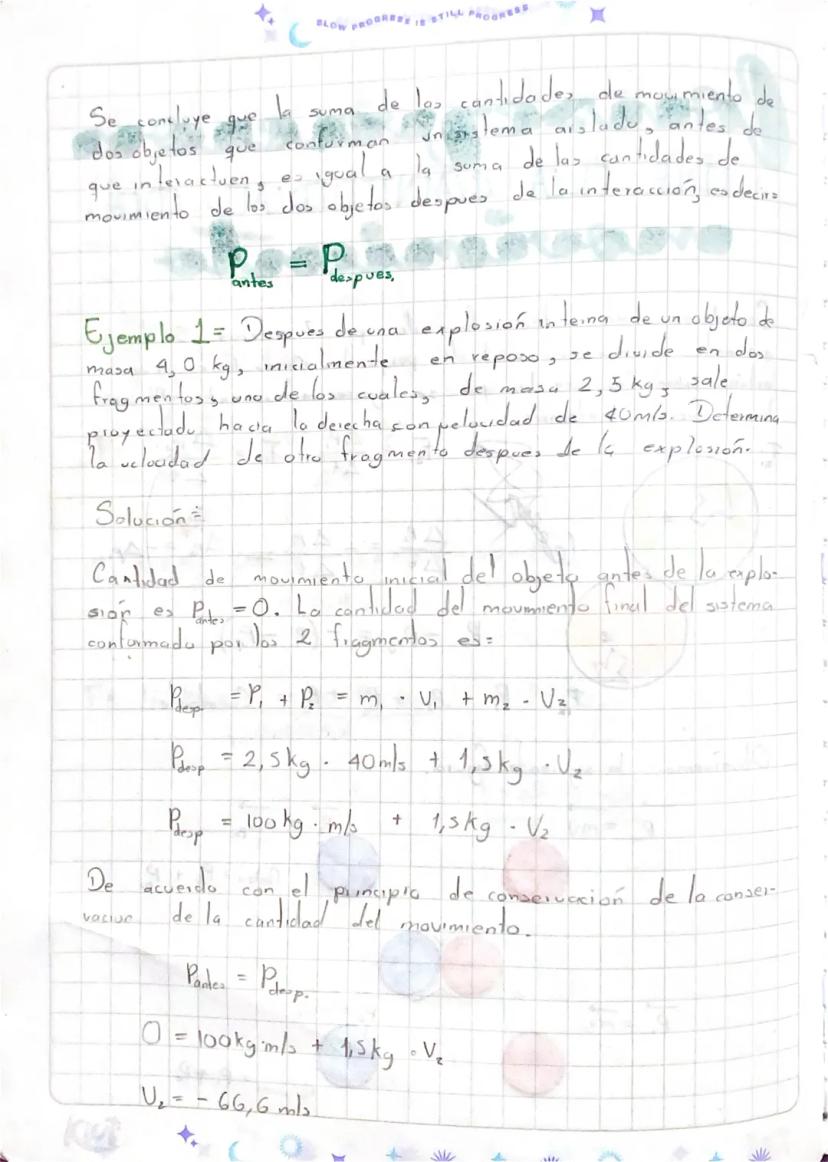 SLOW PROGRESS IS STILL PROGRESS
Se concluye que la suma de las cantidades de movimiento de
dos objetos que conforman un sistema aislado, antes de
que interactuen, es igual a la suma de las cantidades de
movimiento de los dos objetos despues de la interacción, es decir:
P antes = P despues,
Ejemplo 1= Despues de una explosión interna de un objeto de
masa 4,0 kg, inicialmente en reposo, se divide en dos
fragmentos, uno de los cuales, de masa 2,5 kg, sale
proyectado hacia la derecha con velocidad de 40m/s. Determina
la velocidad de otro fragmento despues de la explosión.
Solución:
Cantidad de movimiento inicial del objeto antes de la explo-
sión es Pantes = 0. La cantidad del movimiento final del sistema
conformado por los 2 fragmentos es=
Pdesp. = P₁ + P₂ = m₁ · V₁ + m₂ · V₂
Pdesp = 2,5kg · 40m/s + 1,5kg · V₂
Pdesp = 100kg · m/s + 1,5kg · V₂
De acuerdo con el principio de conservación de la conser-
vacion de la cantidad del movimiento.
Pantes = Pdesp.
0 = 100kg·m/s + 1,5kg · V₂
V₂ = - 66,6 m/s